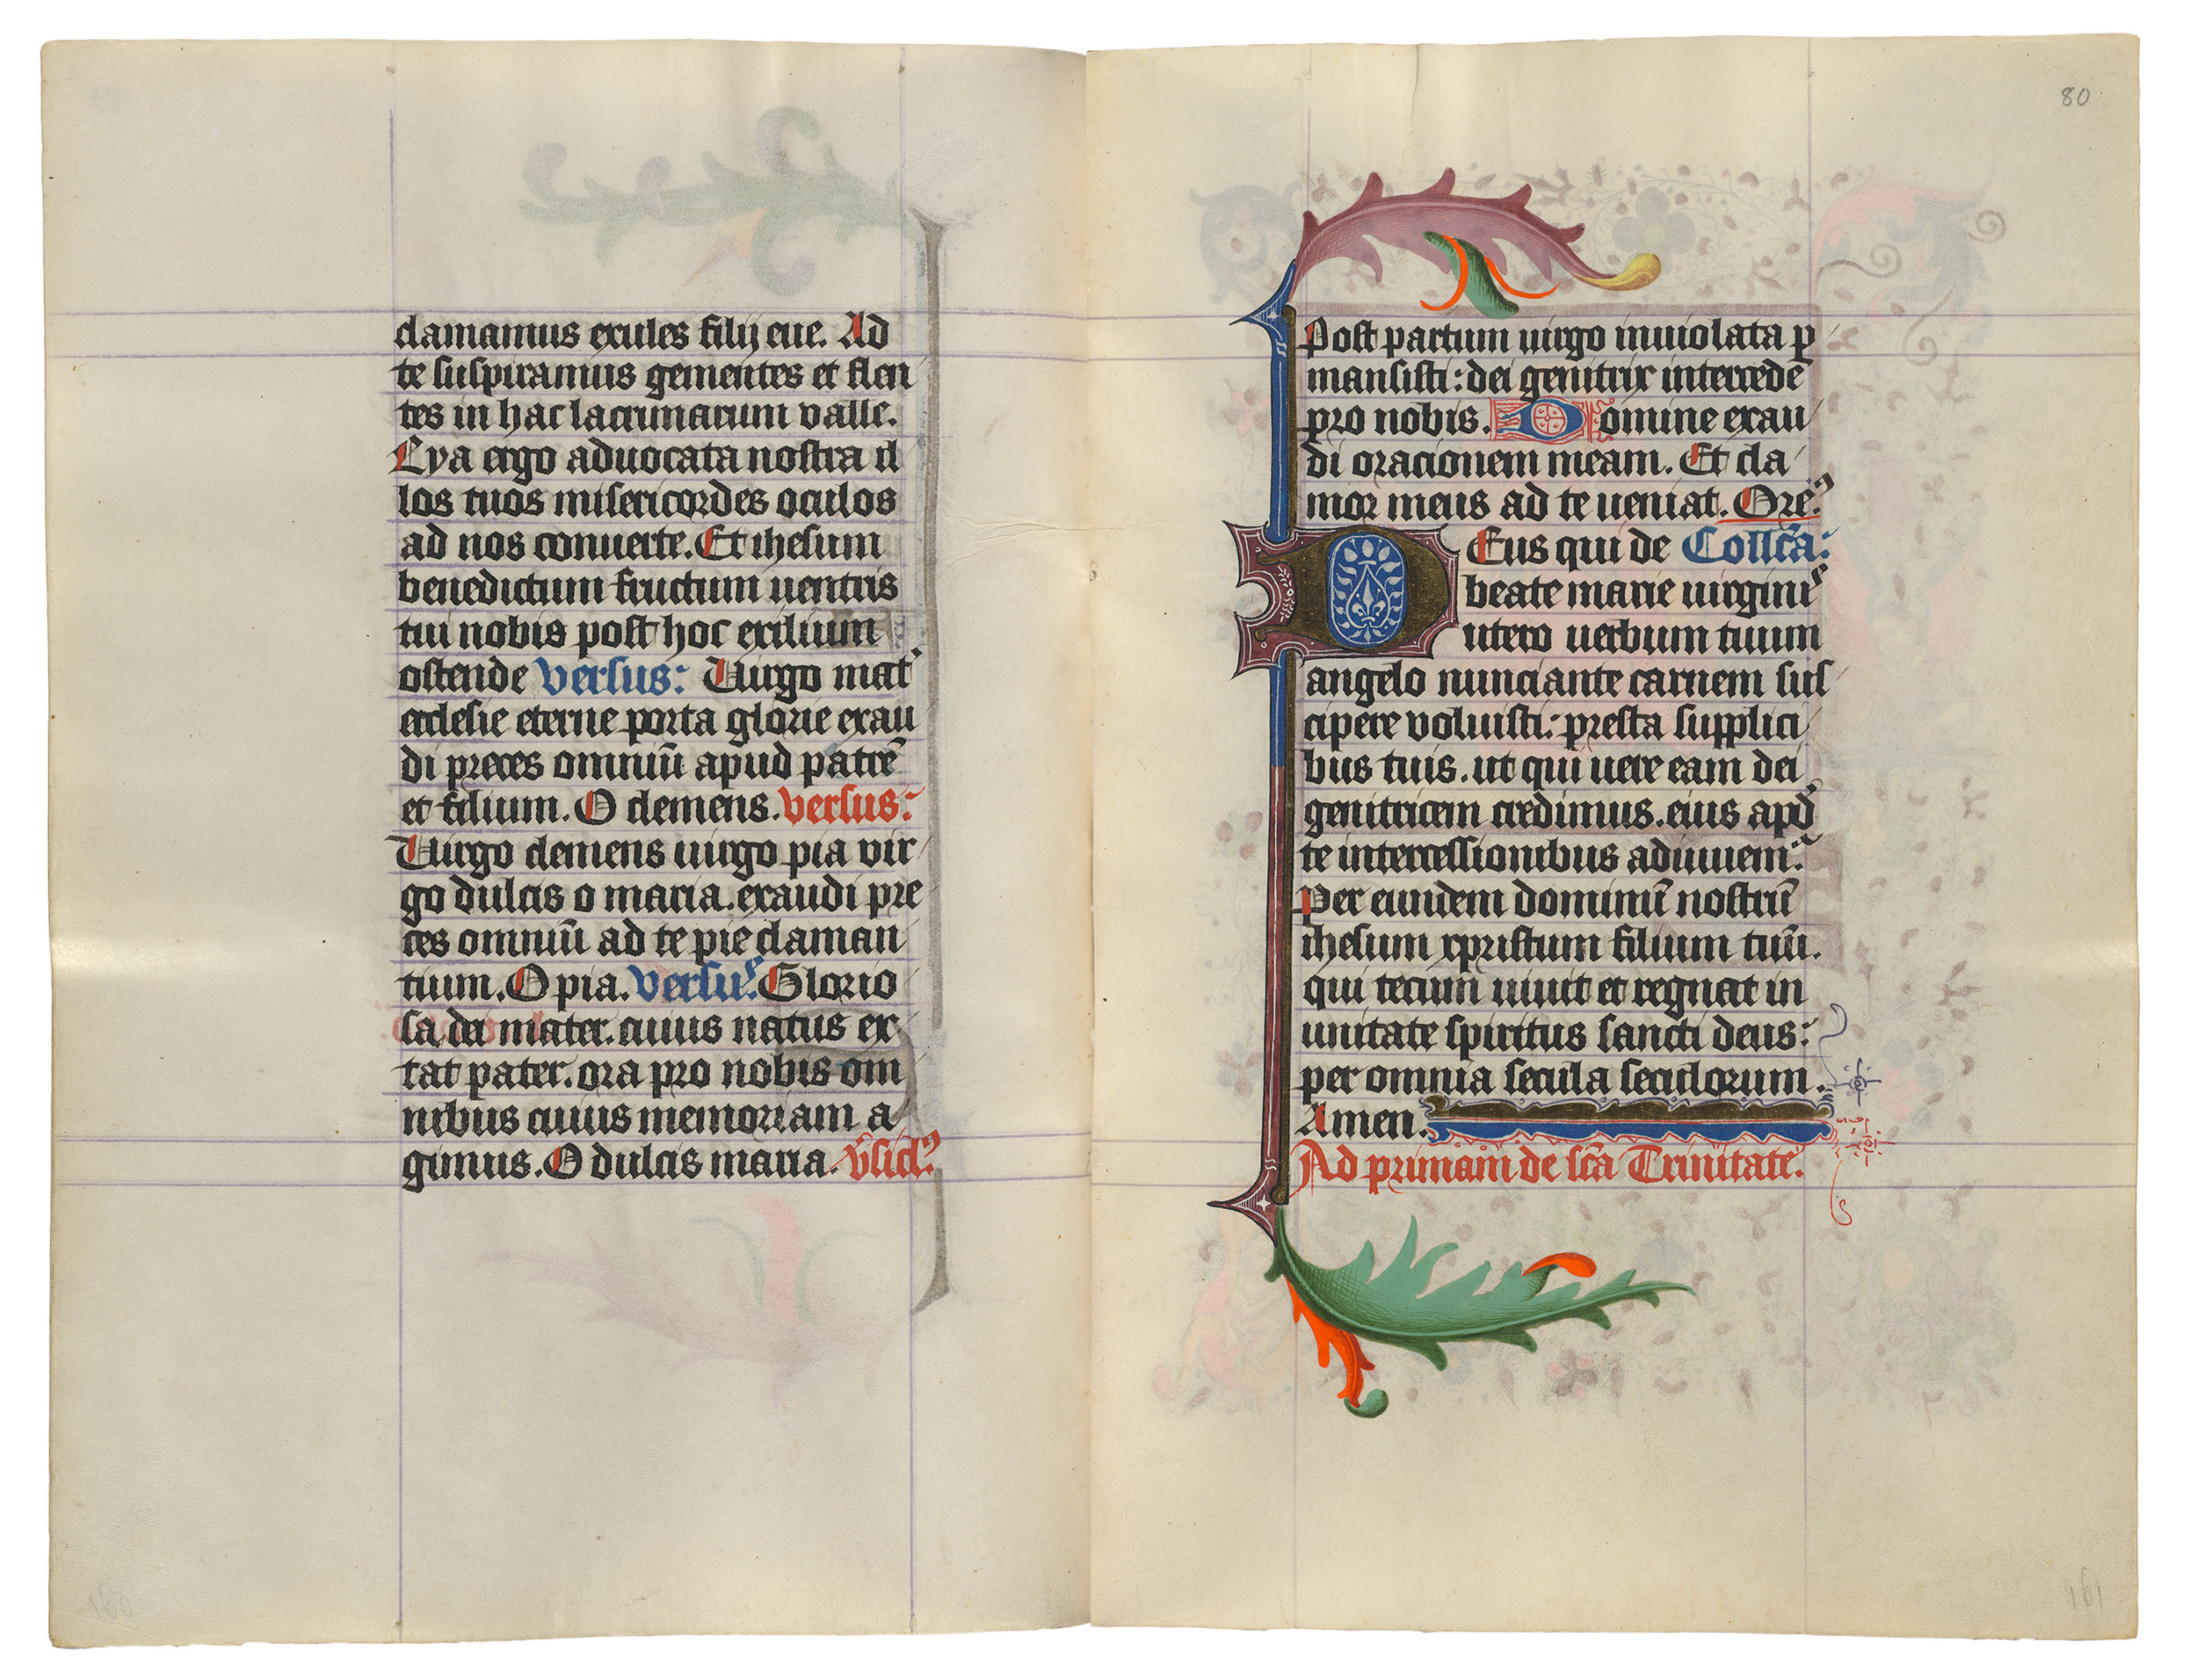 clamamus exules filij eue. Ad
te suspiramus gementes et flen
tes in hac lacrimarum valle.
Eya ergo aduocata nostra il
los tuos misericordes oculos
ad nos conuerte. Et ihesum
benedictum fructum uentris
tui nobis post hoc exilium
ostende versus: Uirgo mat᷑
ecclesie eterne porta glorie exau
di preces omniū apud patrē
et filium. O clemens. versus:
Uirgo clemens uirgo pia vir
go dulcis o maria. exaudi pre
ces omniū ad te pie claman
tium. O pia. versuꝰ. Glorio
sa dei mater. cuius natus ex
tat pater. ora pro nobis om
nibus cuius memoriam a
gimus. O dulcis maria. v̾sicl᷑.
80
Post partum uirgo inuiolata ꝑ
mansisti: dei genitrix intercede
pro nobis. Domine exau
di oracionem meam. Et cla
mor meus ad te ueniat. Orē᷑
Deus qui de Collc̄a:
beate marie uirginiꝰ
utero uerbum tuum
angelo nunciante carnem sus
cipere voluisti: presta supplici
bus tuis. ut qui uere eam dei
genitricem credimus. eius apd᷑
te intercessionibus adiuuem᷑.
Per eundem dominū nostrū
ihesum xpristum filium tuū.
qui tecum uiuit et regnat in
unitate spiritus sancti deus:
per omnia secula seculorum.
Amen.
Ad primam de sc̄a Trinitate.
160
161